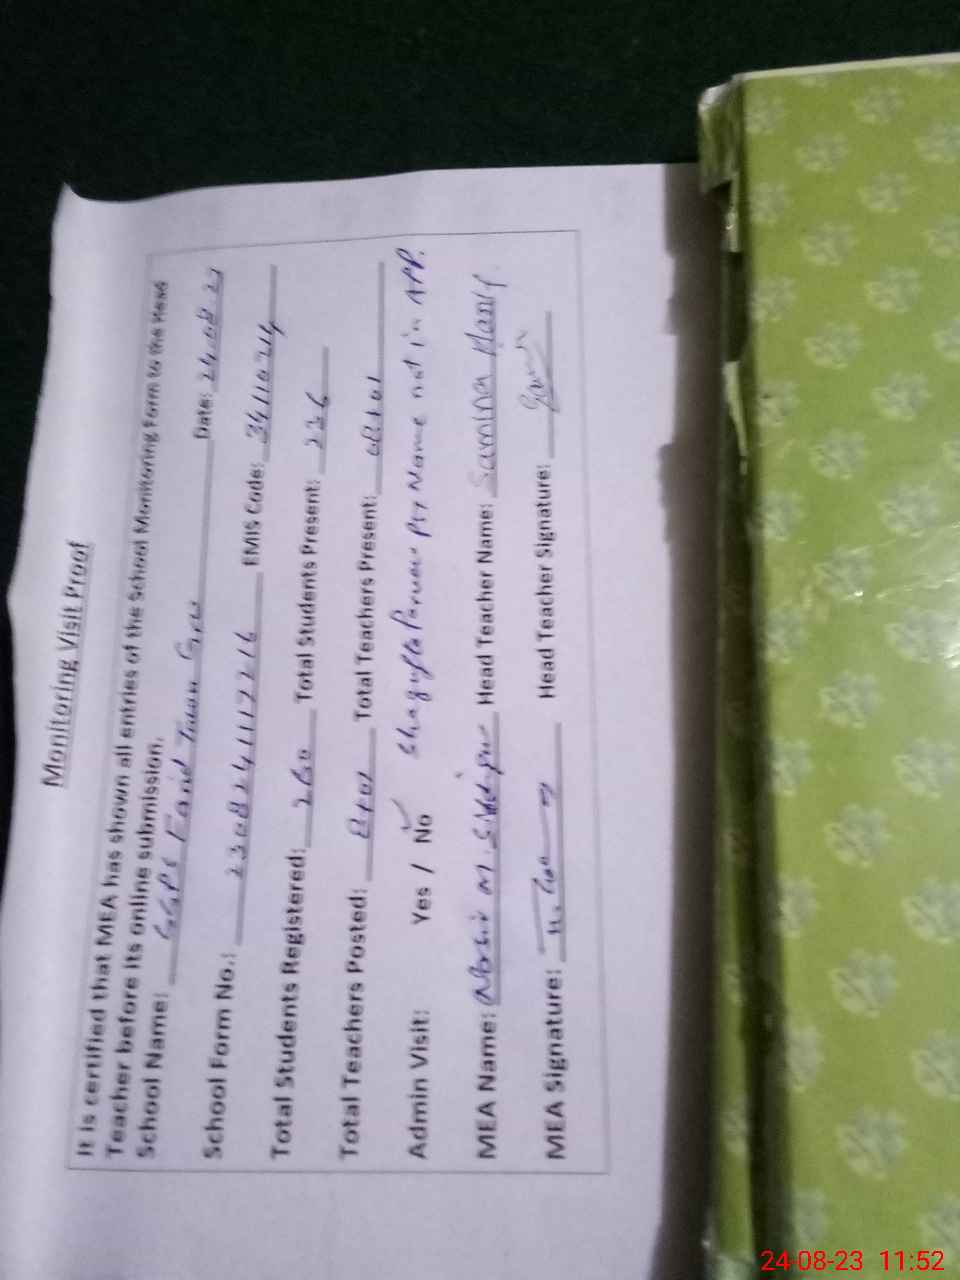 Monitoring Visit Proof
It is certified that MEA has shown all entries of the School Monitoring Form to the Head
Teacher before its online submission.
School Name: Farid Town Date: 24.08.23
School Form No.: EMIS Code:
Total Students Registered: 260 Total Students Present: 236
Total Teachers Posted: 8+01 Total Teachers Present: 08+01
Admin Visit: Yes / No ✓ Shagufta Parveen PST Name not in APP.
MEA Name: Head Teacher Name: Samina Hanif
MEA Signature: Head Teacher Signature:
24-08-23 11:52